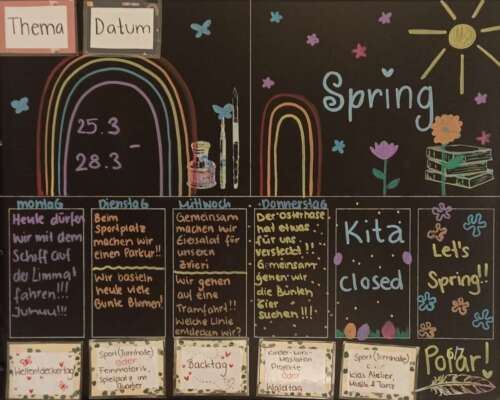 Thema
Datum
25.3 -
28.3
Spring
montag
Dienstag
Mittwoch
Donnerstag
Heute dürfen
wir mit dem
Schiff auf
der Limmat
fahren!!!
Juhuu!!!
Beim
Sportplatz
machen wir
einen Parkur!!
Wir basteln
heute viele
Bunte Blumen!
Gemeinsam
machen wir
Eiersalat für
unseren
Zvieri
Wir gehen
auf eine
Tramfahrt!!
Welche Linie
entdecken wir?
Der Osterhase
hat etwas
für uns
versteckt!!!
Gemeinsam
gehen wir
die Bunten
Eier
suchen!!!
Kita
closed
Let's
Spring!!
Weltentdeckertag
Sport (Turnhalle)
oder
Feinmotorik,
Spielplatz im
Quartier
Backtag
Projekte
oder
Waldtag
Sport (Turnhalle)
Kids Atelier,
Musik & Tanz
Polar!